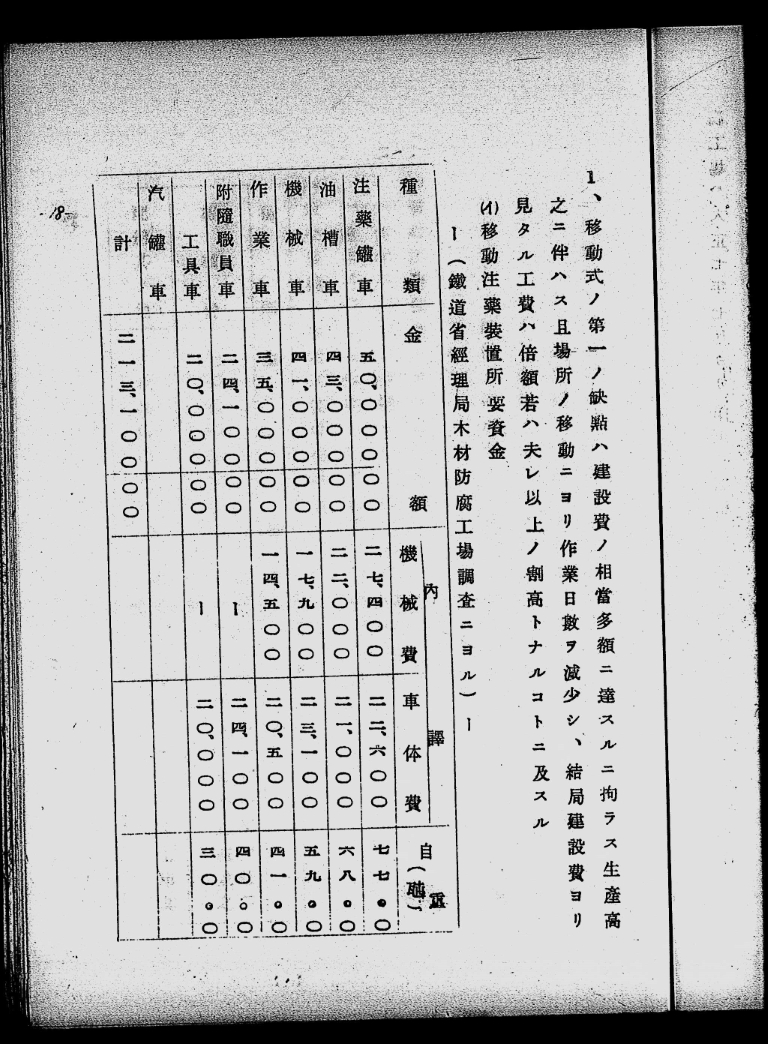 1、移動式ノ第一ノ缺點ハ建設費ノ相當多額ニ達スルニ拘ラス生產高
之ニ伴ハス且場所ノ移動ニヨリ作業日數ヲ減少シ、結局建設費ヨリ
見タル工費ハ倍額若ハ夫レ以上ノ割高トナルコトニ及スル
(イ)移動注藥裝置所要資金
ー(鐵道省經理局木材防腐工場調査ニヨル)ー
種類 金額 內譯 機械費 車体費 自重(瓲)
注藥罐車 五〇、〇〇〇〇〇 二七、四〇〇 二二、六〇〇 七七。〇
油槽車 四三、〇〇〇〇〇 二二、〇〇〇 二一、〇〇〇 六八。〇
機械車 四一、〇〇〇〇〇 一七、九〇〇 二三、一〇〇 五九。〇
作業車 三五、〇〇〇〇〇 一四、五〇〇 二〇、五〇〇 四一。〇
附隨職員車 二四、一〇〇〇〇 ー 二四、一〇〇 四〇。〇
工具車 二〇、〇〇〇〇〇 ー 二〇、〇〇〇 三〇。〇
汽罐車
計 二一三、一〇〇〇〇
-18-